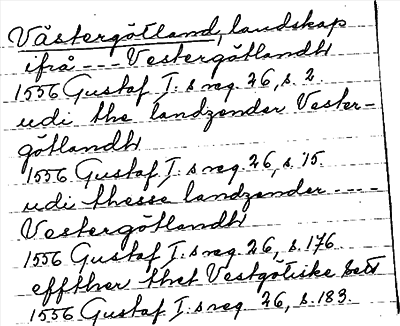 Västergötland, landskap
ifrå --- Vestergötlandh
1556 Gustaf I:s reg. 26, s. 2.
udi the landzender Vester-
götlandh
1556 Gustaf I:s reg. 26, s. 15.
udi thesse landzender ----
Vestergötlandh
1556 Gustaf I:s reg. 26, s. 176.
effther thet Vestgötiske sett
1556 Gustaf I:s reg. 26, s. 183.